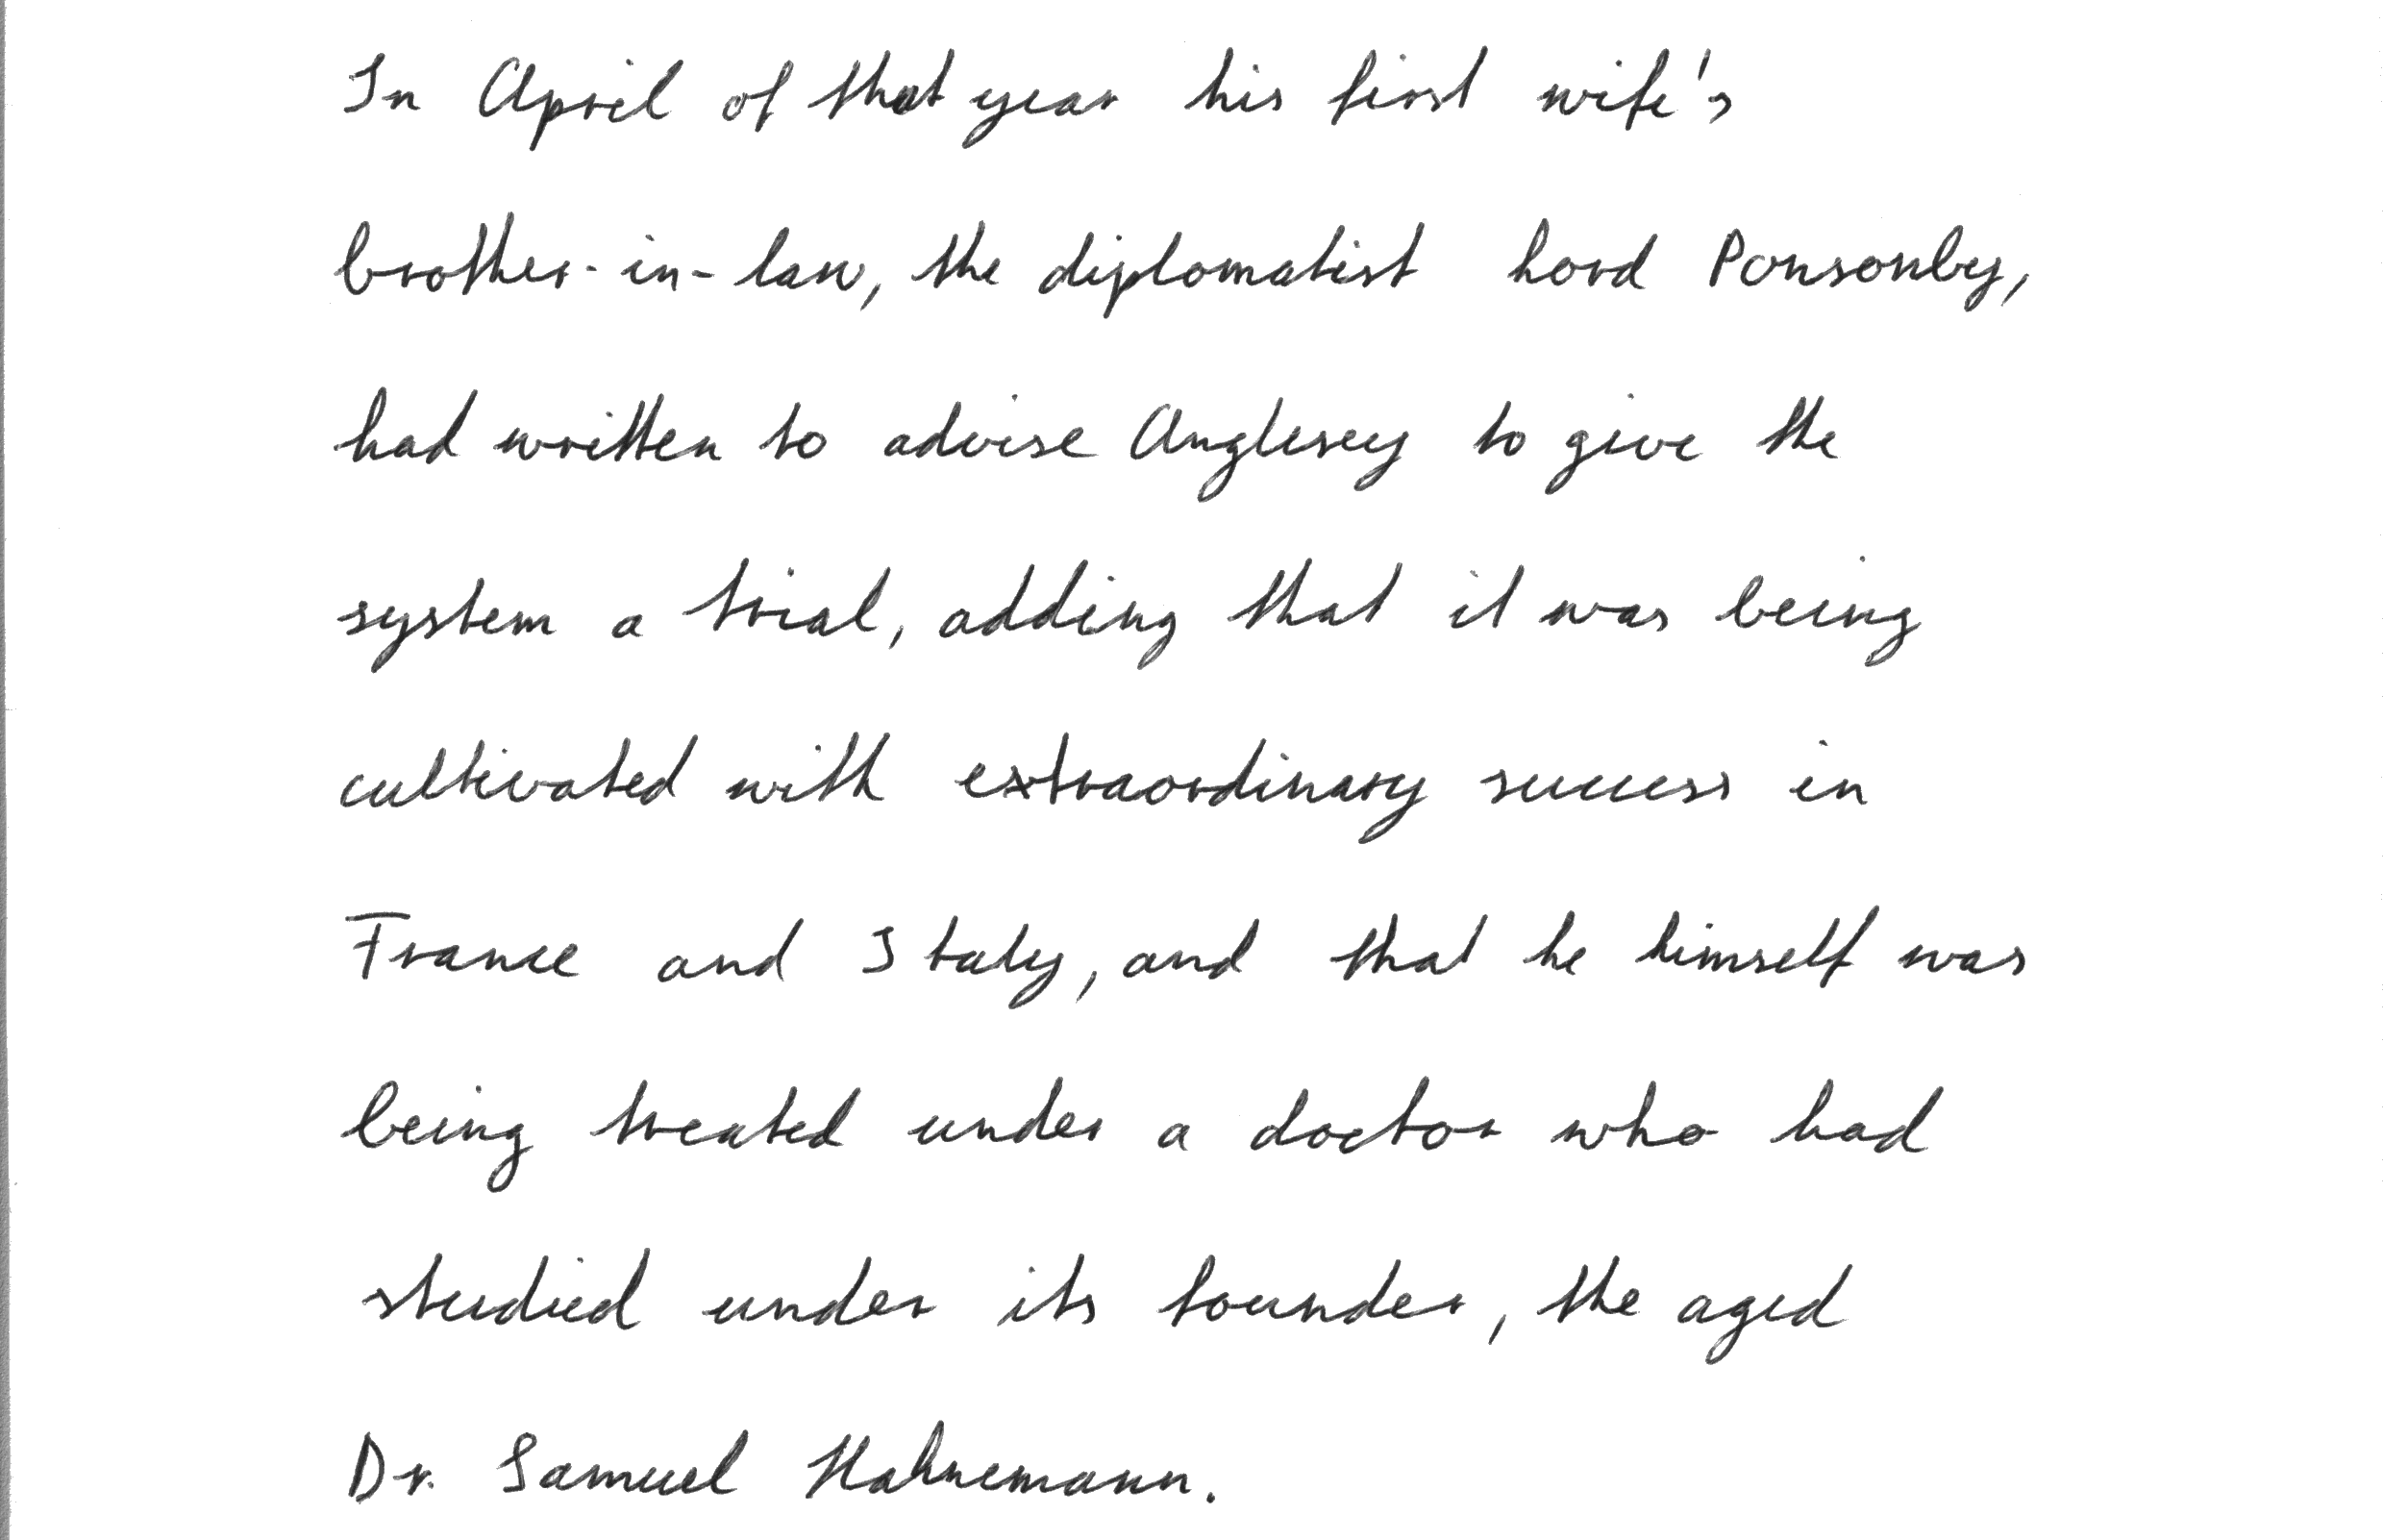 In April of that year his first wife's
brother-in-law, the diplomatist Lord Ponsonby,
had written to advise Anglesey to give the
system a trial, adding that it was being
cultivated with extraordinary success in
France and Italy, and that he himself was
being treated under a doctor who had
studied under its founder, the aged
Dr. Samuel Hahnemann.